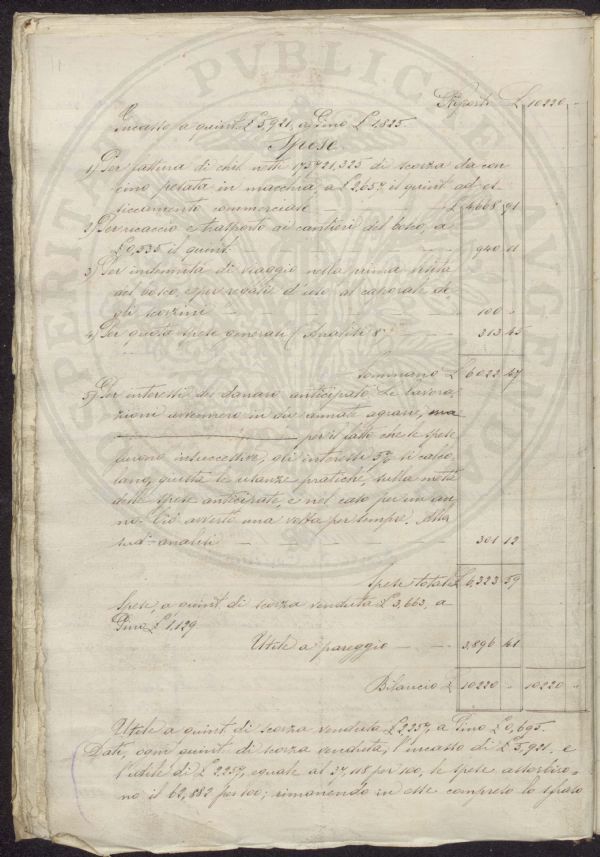 Riporto £ 10220 "
Incasso a quint. £ 5,921, a Pino £ 1,825.
Spese
1) Per fattura di chil. netti 175721,325 di scorza da con-
cino pelata in macchia, a £ 2,657 il quint. ad es-
siccamento commerciale — £ 4,668 91
2) Per ricaccio e trasporto ai cantieri del bosco, a
£ 0,535 il quint. — 940 11
3) Per indennità di viaggio nella prima visita
del bosco, e per regalie d'uso al caporale de-
gli scorzini — 100 "
4) Per quota spese generali (Analisi 8ª — 313 45
Sommano £ 6022 47
5) Per interessi del danaro anticipato. Le lavora-
zioni avvennero in due annate agrarie, ma
per il fatto che le spese
furono in successive, gli interessi 5% si calco-
lano, giusta le usanze pratiche, sulla metà
delle spese anticipate, e nel caso per un an-
no. Ciò avverto una volta per sempre. Alla
sud. analisi — 301 12
Spese totali £ 6,323 59
Spese, a quint. di scorza venduta £ 3,663, a
Pino £ 1,129
Utile a pareggio — 3,896 41
Bilancio £ 10220 " 10220 "
Utile a quint. di scorza venduta £ 2,257, a Pino £ 0,695.
Dati, com' quint. di scorza venduta, l'incasso di £ 5,921, e
l'utile di £ 2,257, eguale al 37,118 per 100, le spese assorbiro-
no il 62,882 per 100; rimanendo in esse compreso lo sfraso